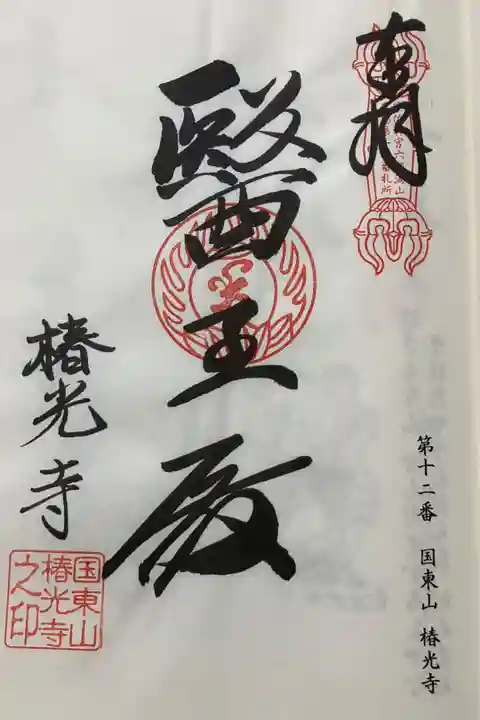 奉拝
醫王殿
椿光寺
国東山
椿光寺
之印
第十二番　国東山　椿光寺